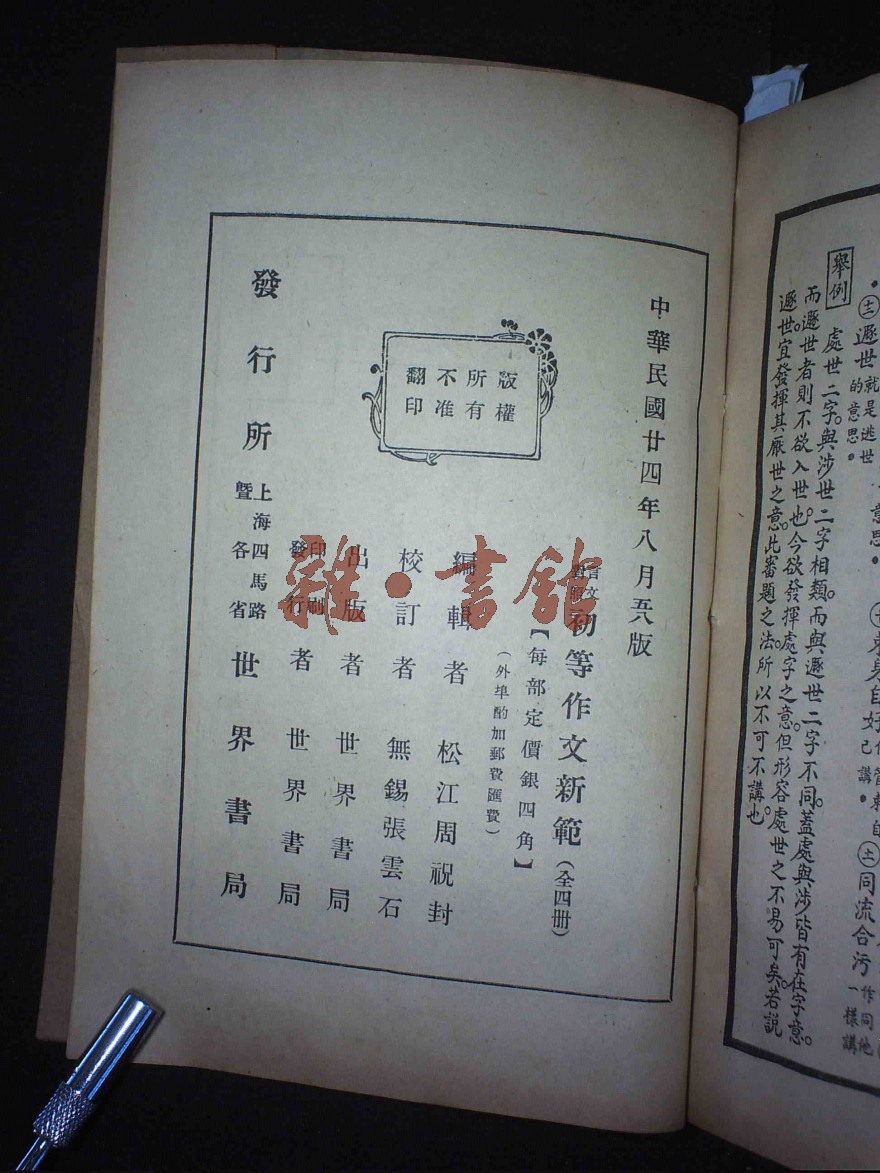 ㊂遯世就是逃世的意思。
㊏同流合污作同他一樣講
舉例
處世二字。與涉世二字相類。而與遯世二字不同。蓋處與涉皆有在字意。
而遯世者則不欲入世也。今欲發揮處字之意。但形容處世之不易可矣。若說
遯世。宜發揮其厭世之意。此審題之法。所以不可不講也。
中華民國廿四年八月五版
言文對照初等作文新範(全四册)
【每部定價銀四角】
(外埠酌加郵費匯費)
版權
所有
不准
翻印
編輯者 松江周祝封
校訂者 無錫張雲石
出版者 世界書局
印刷發行者 世界書局
發行所 上海四馬路暨各省 世界書局
雜·書館